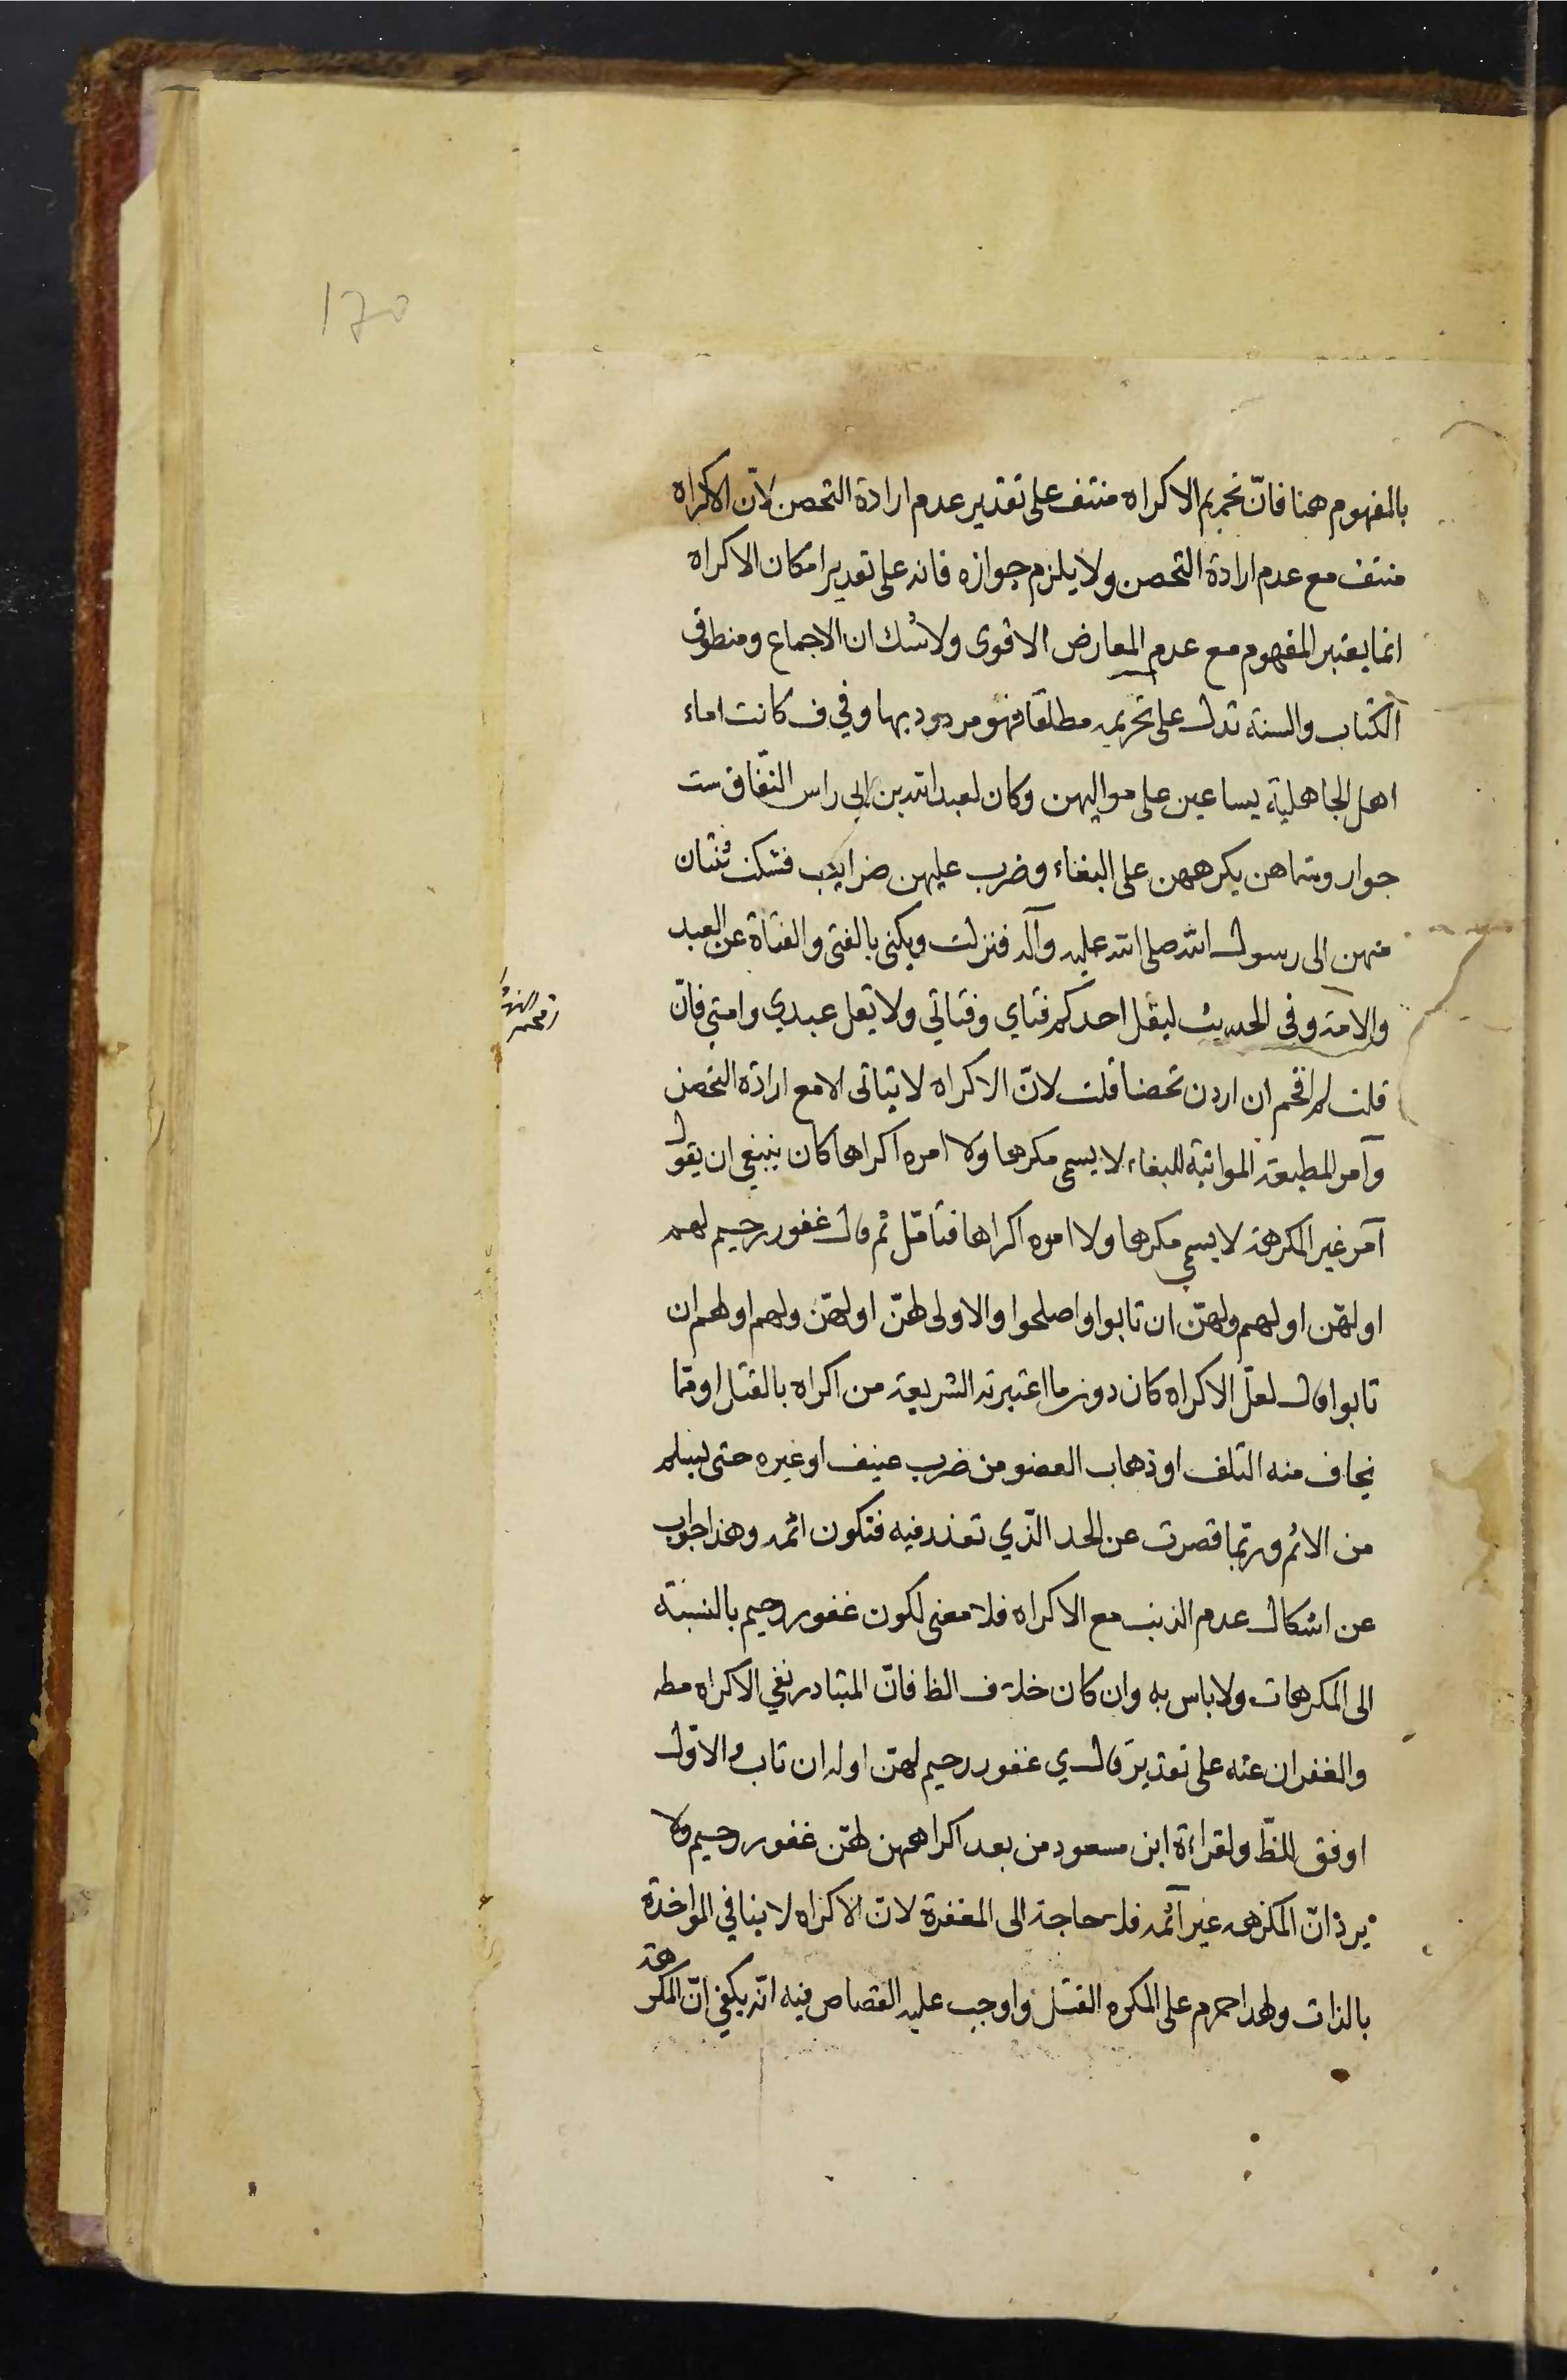 170
بالمفهوم هنا فانّ تحريم الاكراه منتف على تقدير عدم ارادة التحصن لانّ الاكراه
منتف مع عدم ارادة التحصن ولا يلزم جوازه فانه على تقدير امكان الاكراه
انما يعتبر المفهوم مع عدم المعارض الاقوى ولا شك ان الاجماع ومنطوق
الكتاب والسنة تدل على تحريمه مطلقا فهو مردود بها وفي ف كانت اماء
اهل الجاهلية يساعين على مواليهن وكان لعبد الله بن ابي راس النّفاق ست
جوار وسماهن يكرههن على البغاء وضرب عليهن ضرايب فشكت ثنتان
منهن الى رسول الله صلى الله عليه وآله فنزلت ويكنى بالفتى والفتاة عن العبد
والامة وفي الحديث ليقل احدكم فتاي وفتاتي ولا يقل عبدي وامتي فانّ
قلت لم اقحم ان اردن تحصنا قلت لانّ الاكراه لا يتاتى الا مع ارادة التحصن
وآمر المطيعة المواتية للبغاء لا يسمى مكرها ولا امره اكراها كان ينبغي ان يقول
آمر غير المكرهة لا يسمى مكرها ولا امره اكراها فتأمّل ثم قال غفور رحيم لهم
او لهّن او لهم ولهّن ان تابوا واصلحوا والاولى لهنّ او لهّن ولهم او لهم ان
تابوا قال لعلّ الاكراه كان دون ما اعتبرته الشريعة من اكراه بالقتل او بما
يخاف منه التلف او ذهاب العضو من ضرب عنيف او غيره حتى يسلم
من الاثم وربّما قصرت عن الحد الّذي تعذر فيه فتكون اثمه وهذا جواب
عن اشكال عدم الذنب مع الاكراه فلا معنى لكون غفور رحيم بالنسبة
الى المكرهات ولا باس به وان كان خلاف الظ فانّ المتبادر نفي الاكراه مطـ
والغفران عنه على تقديره قال ي غفور رحيم لهنّ او له ان تاب والاوّل
اوفق للظّ ولقراءة ابن مسعود من بعد اكراههن لهنّ غفور رحيم ولا
يرد انّ المكرهه غير آثمه فلا حاجة الى المغفرة لانّ الاكراه لا ينافي المواخذة
بالذات ولهذا حرم على المكره القتل واوجب عليه القصاص فيه انّه يكفي انّ المكرهة